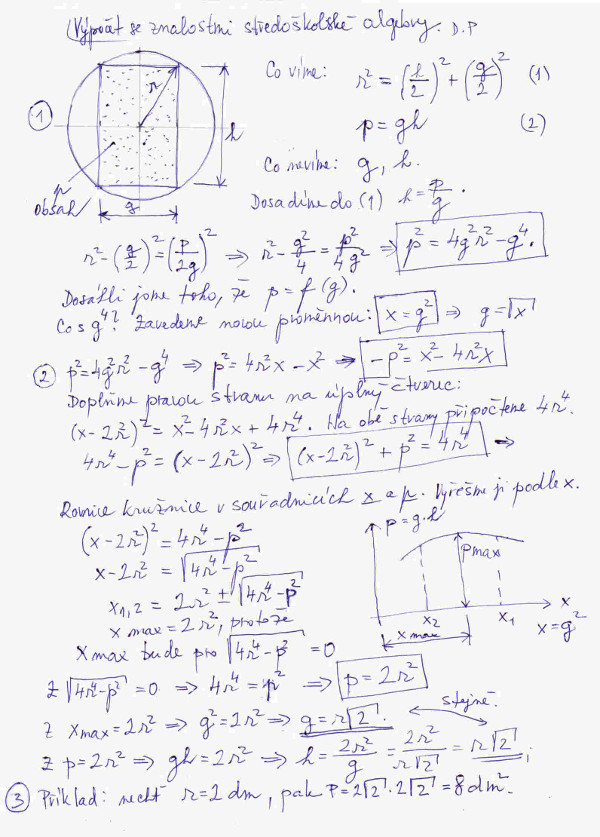 Výpočet se znalostmi středoškolské algebry. D.P
Co víme: r² = (h/2)² + (g/2)² (1)
p = gh (2)
Co nevíme: g, h.
Dosadíme do (1) h = p/g.
1
r
h
p
obsah
g
r² - (g/2)² = (p/2g)² ⇒ r² - g²/4 = p²/4g² ⇒ p² = 4g²r² - g⁴.
Dosáhli jsme toho, že p = f(g).
Co s g⁴? Zavedeme novou proměnnou: x = g² ⇒ g = √x
2 p² = 4g²r² - g⁴ ⇒ p² = 4r²x - x² ⇒ -p² = x² - 4r²x
Doplníme pravou stranu na úplný čtverec:
(x - 2r²)² = x² - 4r²x + 4r⁴. Na obě strany připočteme 4r⁴.
4r⁴ - p² = (x - 2r²)² ⇒ (x - 2r²)² + p² = 4r⁴ ⇒
Rovnice kružnice v souřadnicích x a p. Vyřešme ji podle x.
(x - 2r²)² = 4r⁴ - p²
x - 2r² = √4r⁴ - p²
x1,2 = 2r² ± √4r⁴ - p²
x max = 2r², protože
x max bude pro √4r⁴ - p² = 0
p = g.h
pmax
x2
x1
x
x max
x = g²
z √4r⁴ - p² = 0 ⇒ 4r⁴ = p² ⇒ p = 2r²
z xmax = 2r² ⇒ g² = 2r² ⇒ g = r√2
stejné.
z p = 2r² ⇒ gh = 2r² ⇒ h = 2r²/g = 2r²/r√2 = r√2;
3 Příklad: nechť r = 2 dm, pak P = 2√2 · 2√2 = 8 dm².